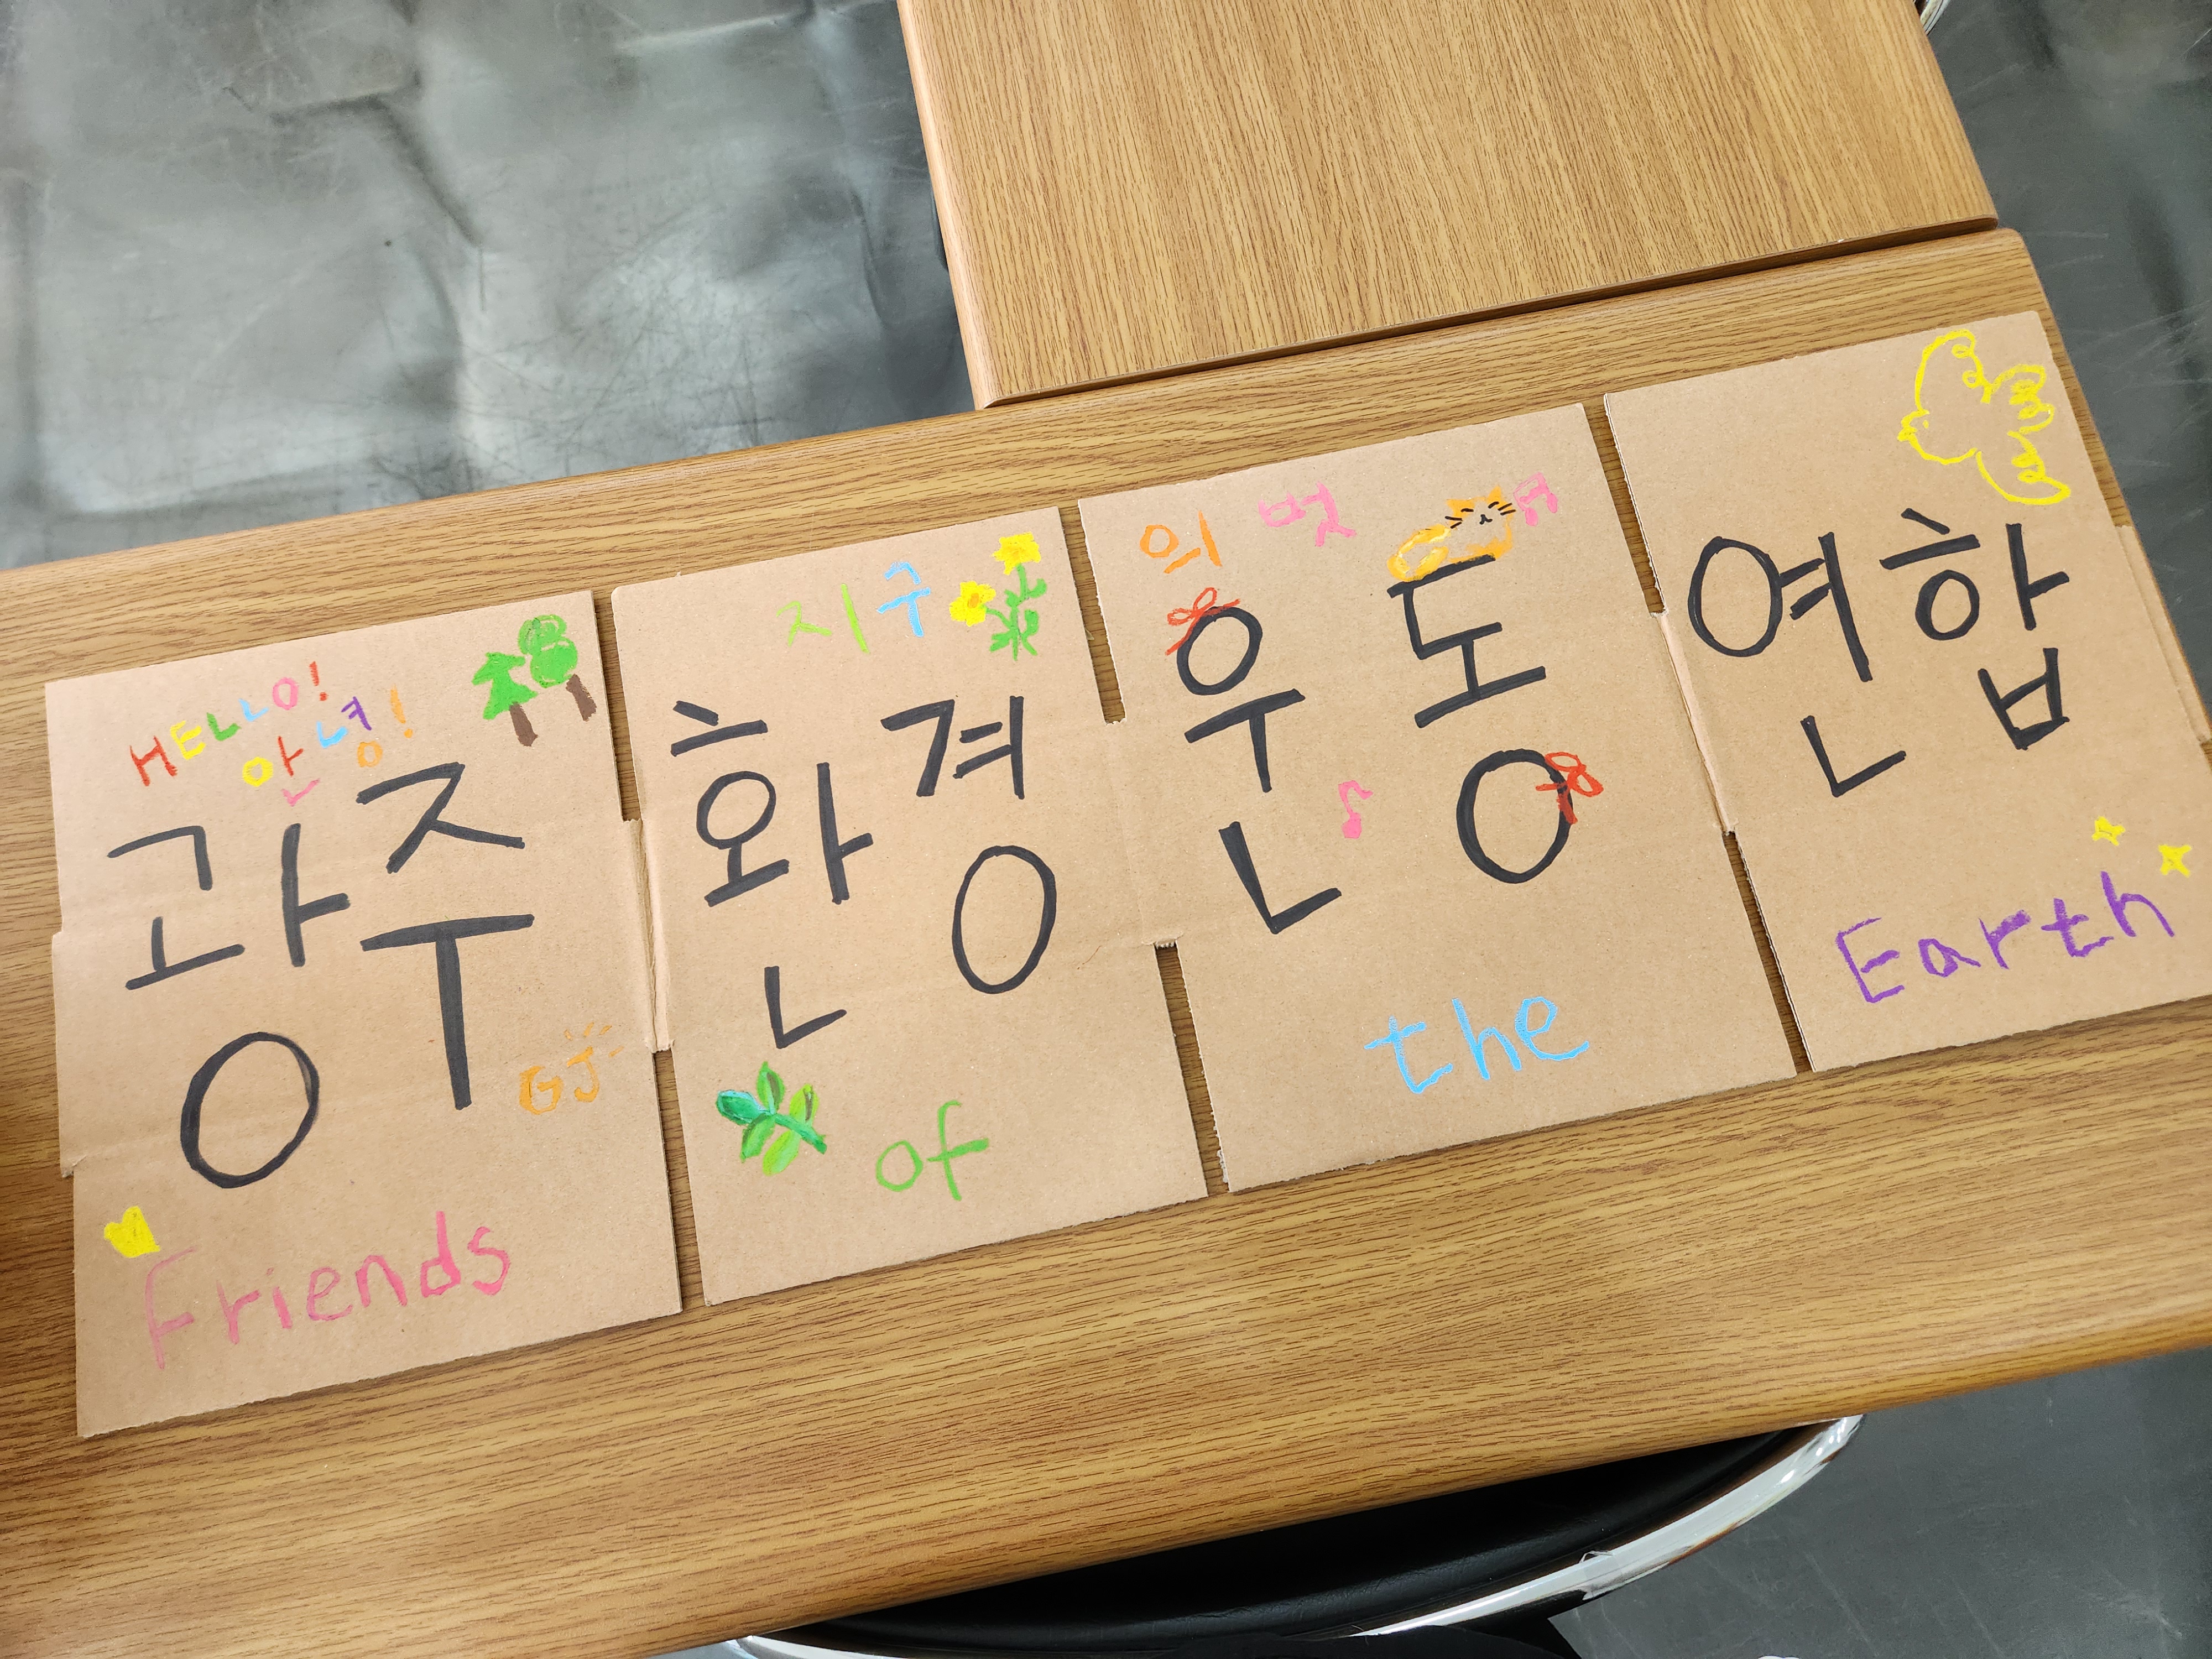 HELLO!
안녕!
지구의 벗
광주 환경 운동 연합
GJ
Friends of the Earth